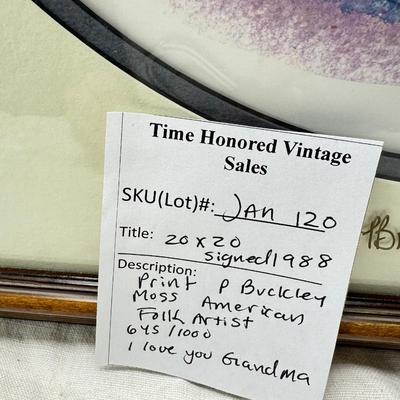 Time Honored Vintage
Sales
SKU(Lot)#: JAN 120
Title: 20x20
signed 1988
Description:
Print P Buckley
Moss American
Folk Artist
645/1000
I love you Grandma